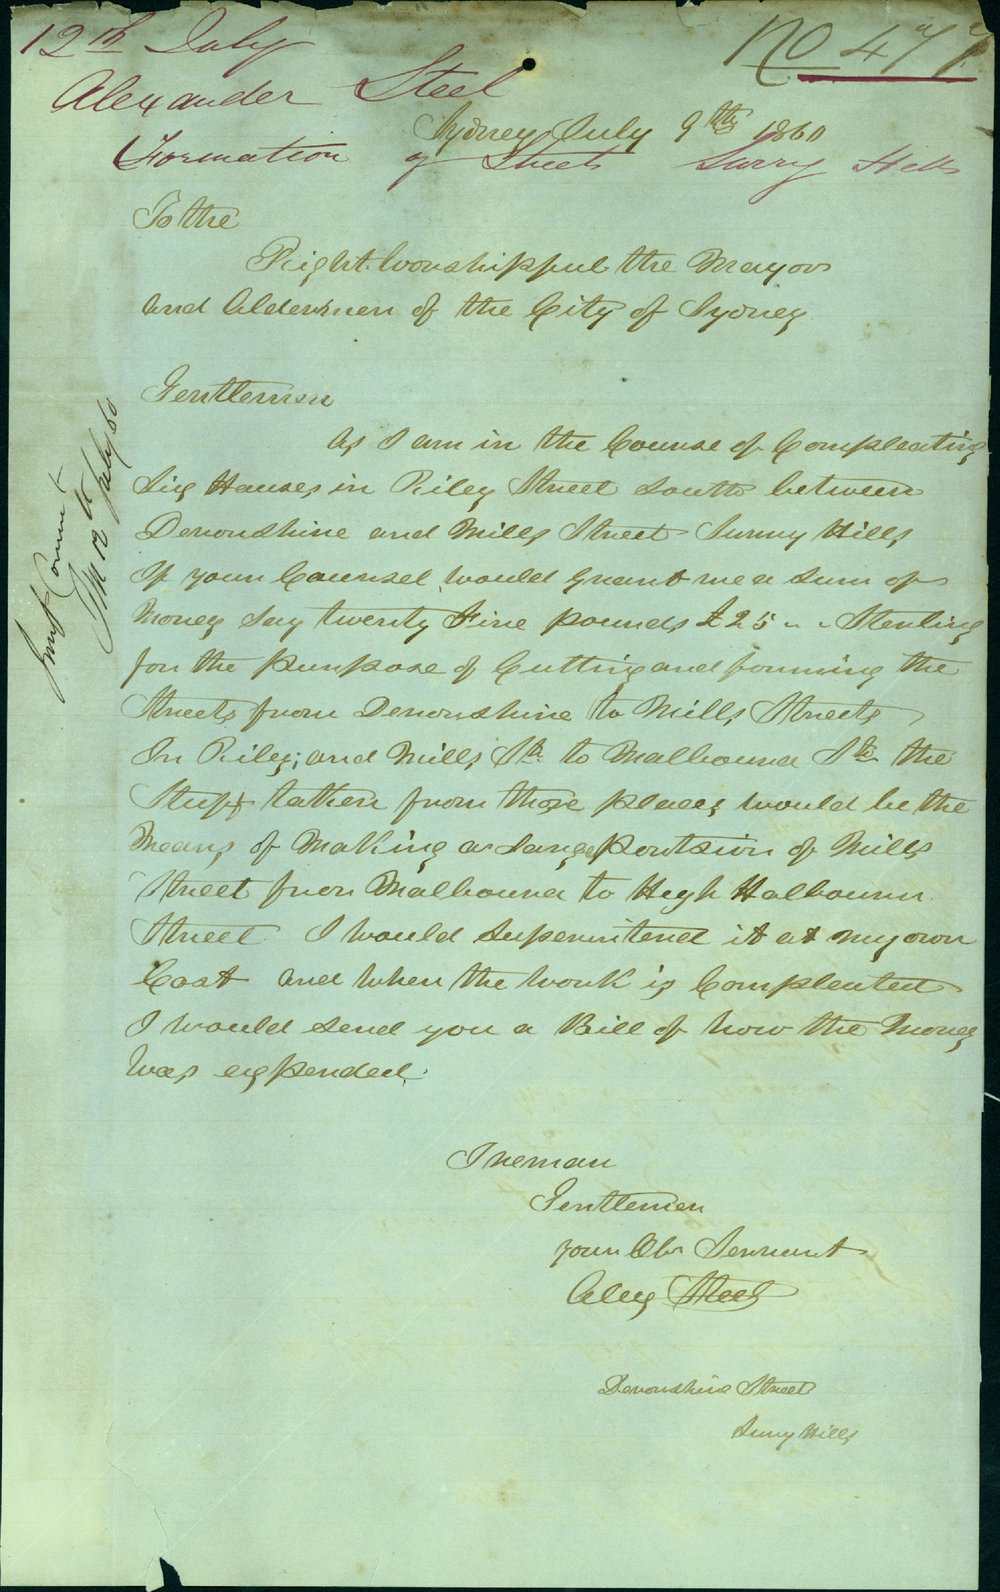 12th July
No 477
Alexander Steel
Sydney July 9th 1860
Formation of Streets Surry Hills
To the
Right Worshippul the Mayor
and Aldermen of the City of Sydney
Gentlemen
As I am in the Course of Compleating
Six Houses in Riley Street South between
Devonshire and Mills Street Surry Hills
If your Counsel would Grant me a Sum of
Money Say twenty Five pounds £25 " " Sterling
for the purpose of Cutting and forming the
Streets from Devonshire to Mills Streets
In Riley; and Mills St. to Malbourn St. the
Stuff taken from those places would be the
Means of Making a Large portsion of Mills
Street from Malbourn to High Halbourn
Street I would Superintend it at my own
Cost and when the work is Compleated
I would send you a Bill of how the Money
Was expended.
I remain
Gentlemen
your Obr Servant
Alex Steel
Devonshire Street
Surry Hills
Impt Commt
12th July 60